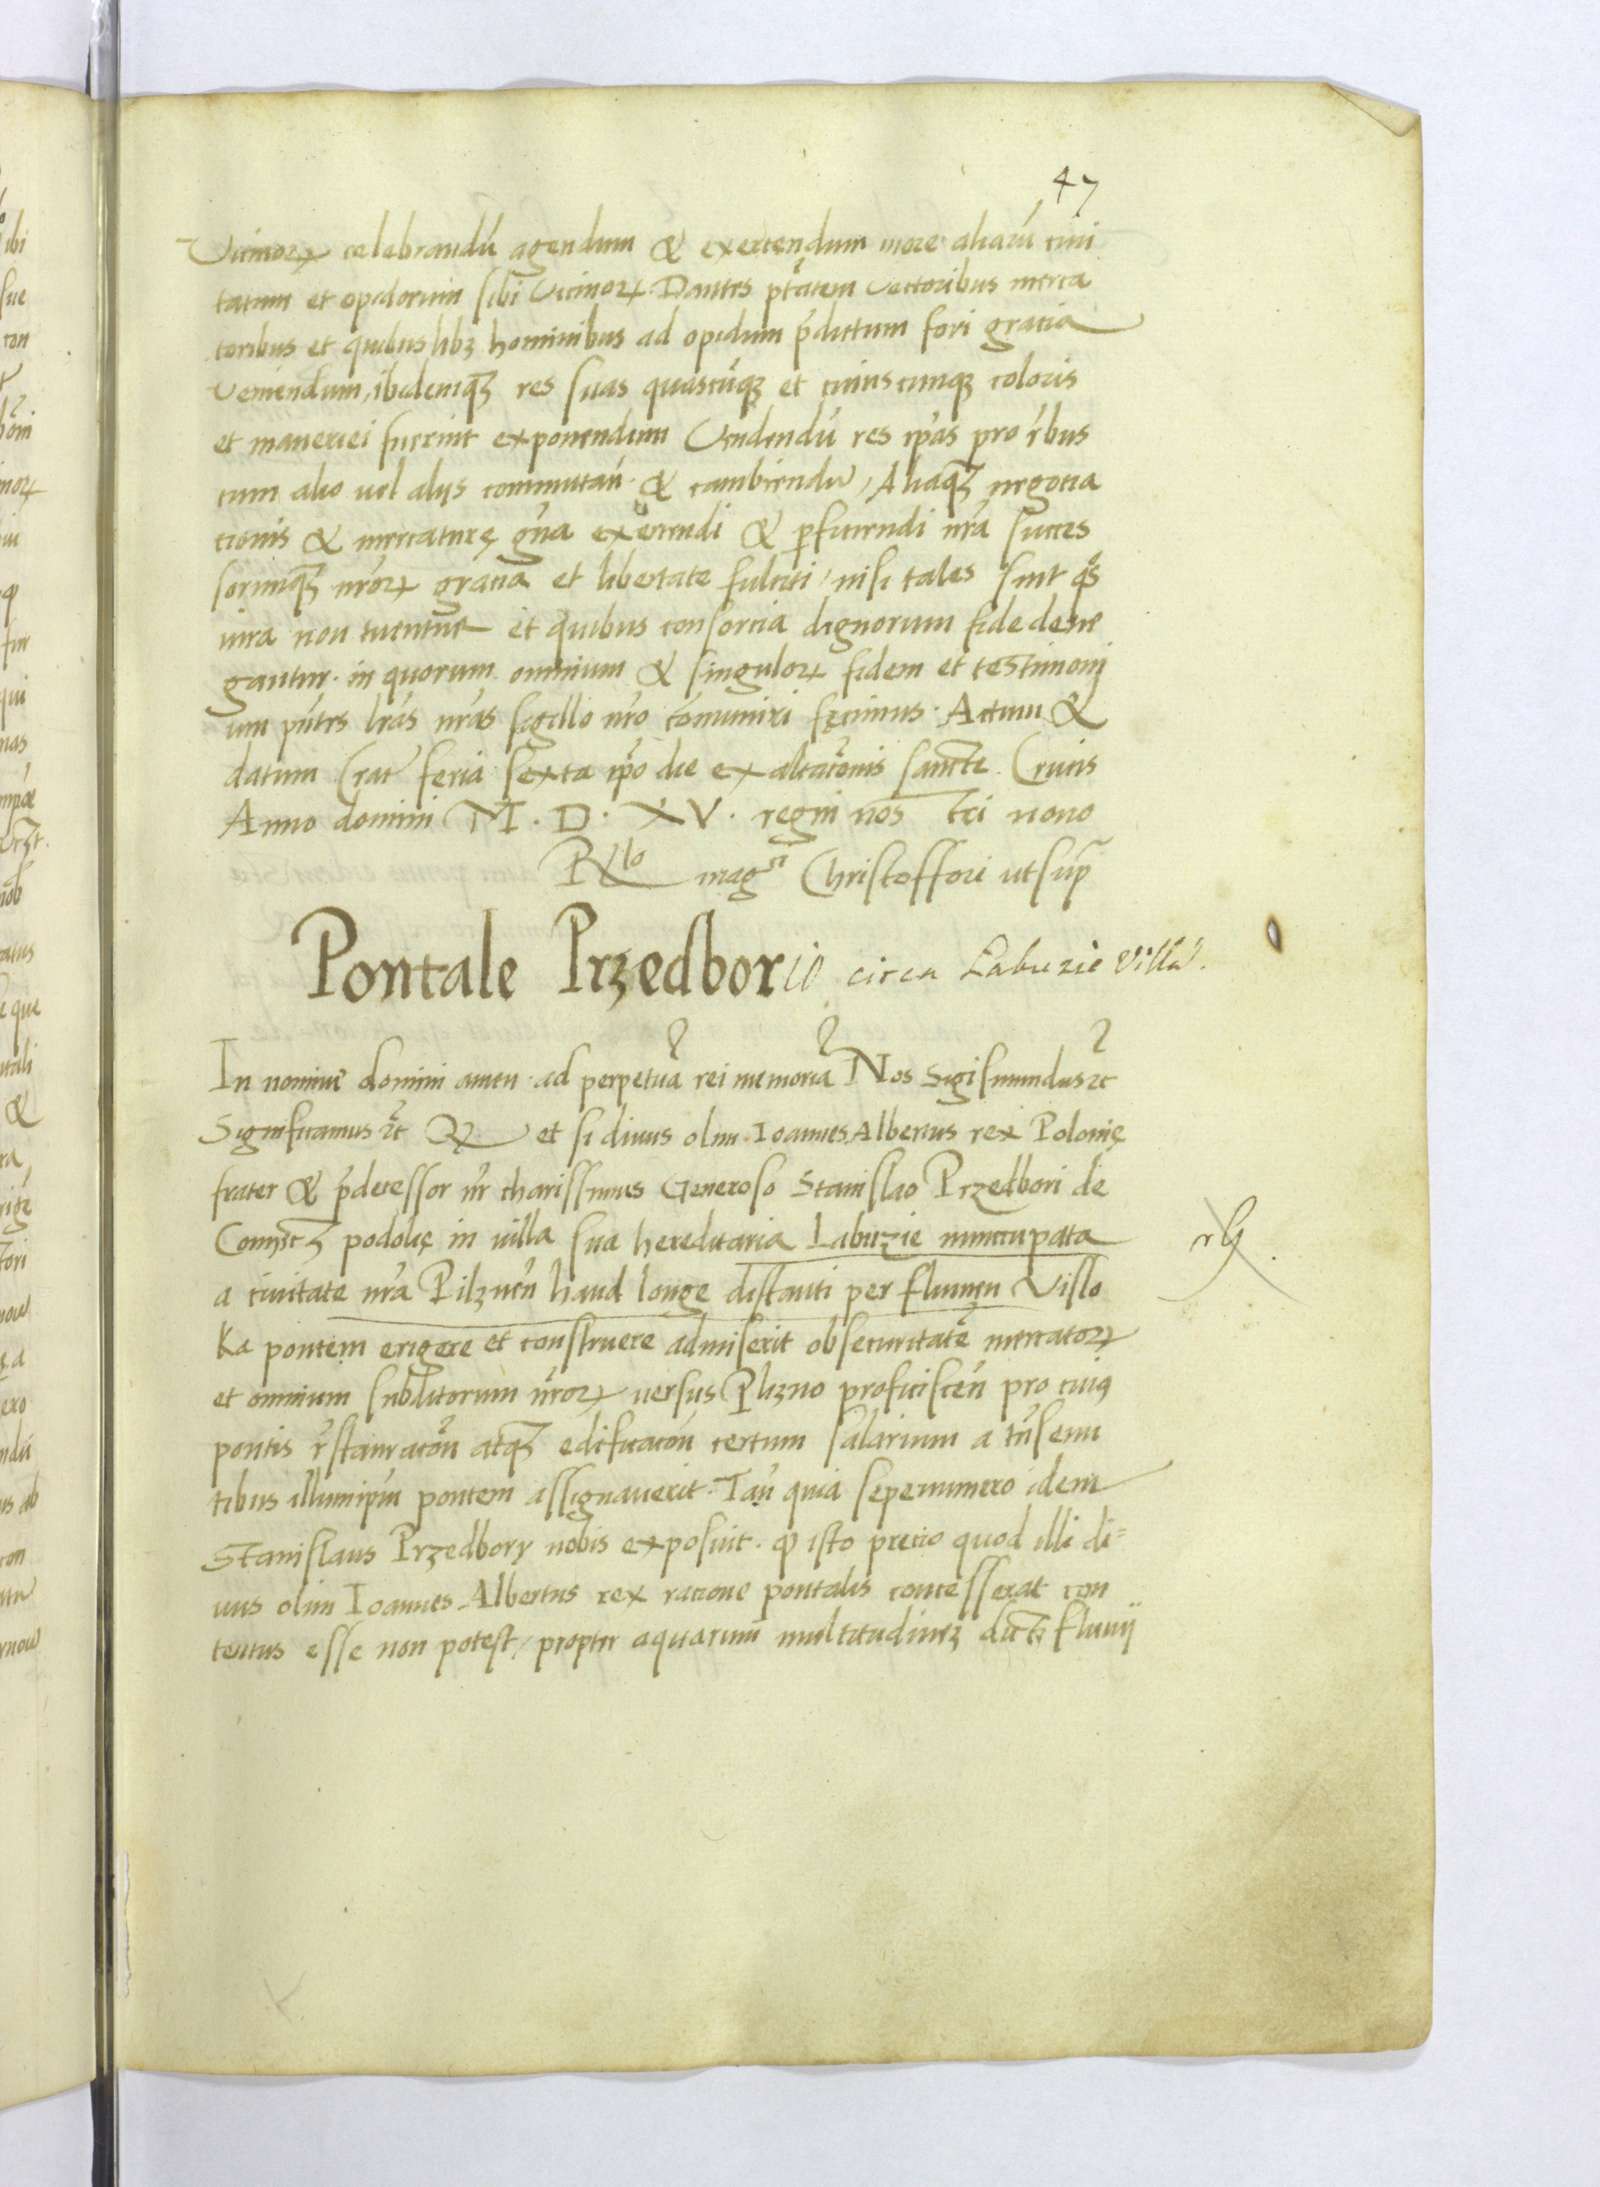 47
Vicinorꝝ celebrandū agendum & exercendum more aliarū ciui
tatum et opidorum sibi Vicinorꝝ Dantes ptātem Vectoribus merca
toribus et quibuslibꝫ hominibus ad opidum p̄dictum fori gratia
Veniendum, ibidemqꝫ res suas quascūqꝫ et cuiuscunqꝫ coloris
et maneriei fuerint exponendum Vendendū res ip̄as pro r̄bus
cum alio vel alijs commutan̄ & cambiendū, Aliaqꝫ negocia
cionis & mercaturę gn̄a exercendi & perficiendi nr̄a succes
sorumqꝫ nr̄orꝝ gracia et libertate fulciti, nisi tales sint qōs
iura non tuentur et quibus consorcia dignorum fide dene
gantur. in quorum omnium & singulorꝝ fidem et testimoni
um pn̄tes lrās nrās sigillo nrō cōmuniri fecimus. Actum &
datum Crac̄ feria sexta ip̄o die exaltacōnis sancte Crucis
Anno domini M. D. XV. regni nos tri nono
Rˡᵒ magᶜⁱ Christoffori ut sup̄
Pontale Przedborio circa Labuzie villā.
In nomine domini amen. ad perpetuā rei memoriā Nos Sigismundus ⁊c
Significamus ⁊c Qꝫ et si diuus olim Ioannes Albertus rex Polonię
frater & p̄decessor nr̄ charissimus Generoso Stanislao Przedbori de
podolię in villa sua hereditaria Labuzie nuncupata
a ciuitate nr̄a Pilznen̄ haud longe distanti per flumen Vislo
ka pontem erigere et construere admiserit ob securitatē mercatorꝝ
et omnium subditorum nr̄orꝝ versus Plizno proficiscen̄ pro cuiꝰ
pontis r̄stauracōn atqꝫ edificacōn certum salarium a tn̄seun
tibus illum ip̄m pontem assignauerit. Tan̄ quia sepenumero idem
Stanislaus Przedbory nobis exposuit. ꝙ isto precio quod illi di=
uus olim Ioannes Albertus rex racione pontalis concesserat con
tentus esse non potest, propter aquarum multitudinez dicti fluuij